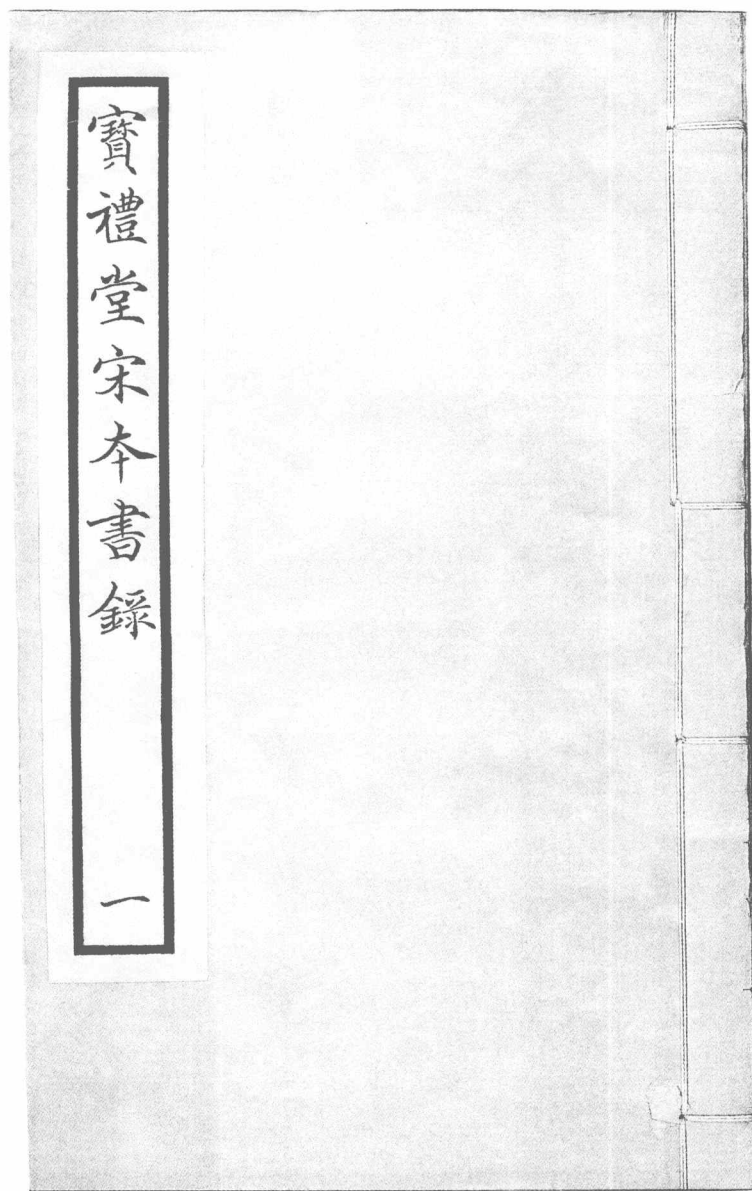 寶禮堂宋本書録
一